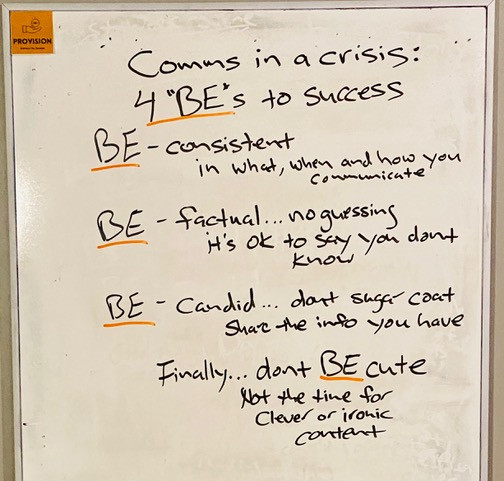 PROVISION
Comms in a crisis:
4 "BE"s to success
BE - consistent
in what, when and how you
communicate
BE - factual... no guessing
it's ok to say you dont
know
BE - Candid... dont sugar coat
Share the info you have
Finally... dont BE cute
Not the time for
Clever or ironic
content